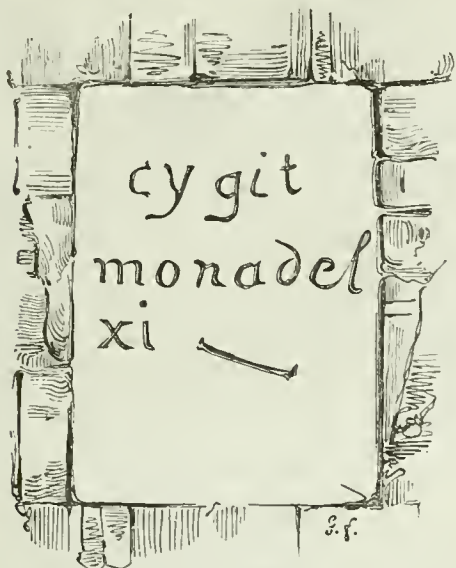 cy git
monadel
xi
G. f.